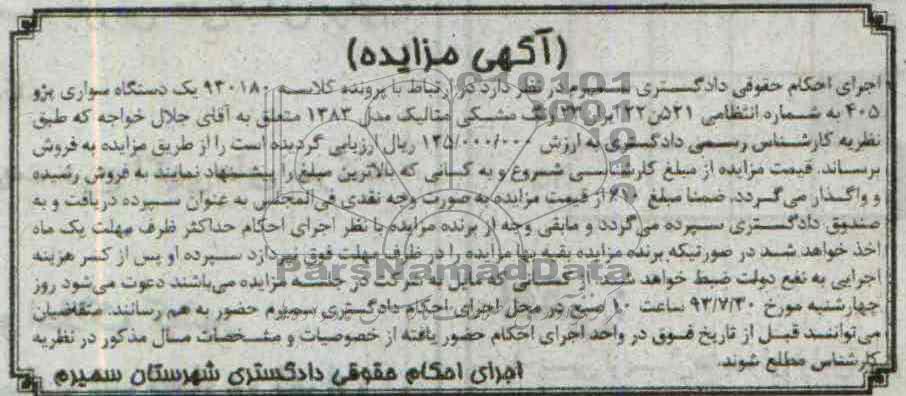 (آگهی مزایده)
اجرای احکام حقوقی دادگستری سمیرم در نظر دارد در ارتباط با پرونده کلاسه ۹۳۰۱۸۰ یک دستگاه سواری پژو
۴۰۵ به شماره انتظامی ۵۲۱ن۲۲ ایران ۲۳ رنگ مشکی متالیک مدل ۱۳۸۳ متعلق به آقای جلال خواجه که طبق
نظریه کارشناس رسمی دادگستری به ارزش ۱۲۵/۰۰۰/۰۰۰ ریال ارزیابی گردیده است را از طریق مزایده به فروش
برساند. قیمت مزایده از مبلغ کارشناسی شروع و به کسانی که بالاترین مبلغ را پیشنهاد نمایند به فروش رسیده
و واگذار می‌گردد. ضمنا مبلغ ۱۰٪ از قیمت مزایده به صورت وجه نقدی فی‌المجلس به عنوان سپرده دریافت و به
صندوق دادگستری سپرده می‌گردد و مابقی وجه از برنده مزایده با نظر اجرای احکام حداکثر ظرف مهلت یک ماه
اخذ خواهد شد در صورتیکه برنده مزایده بقیه بها مزایده را در ظرف مهلت فوق نپردازد سپرده او پس از کسر هزینه
اجرایی به نفع دولت ضبط خواهد شد. از کسانی که مایل به شرکت در جلسه مزایده می‌باشند دعوت می‌شود روز
چهارشنبه مورخ ۹۳/۷/۳۰ ساعت ۱۰ صبح در محل اجرای احکام دادگستری سمیرم حضور به هم رسانند. متقاضیان
می‌توانند قبل از تاریخ فوق در واحد اجرای احکام حضور یافته از خصوصیات و مشخصات مال مذکور در نظریه
کارشناس مطلع شوند.
اجرای احکام حقوقی دادگستری شهرستان سمیرم
ParsNamadData